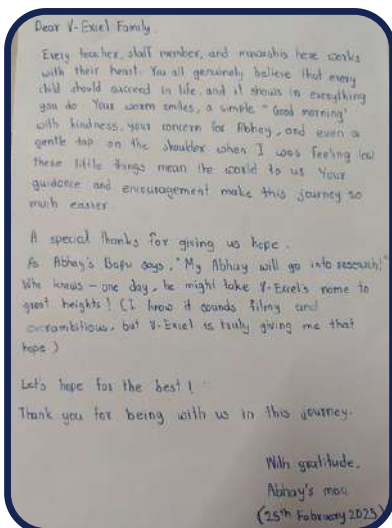 Dear V-Excel Family.
Every teacher, staff member, and mavashis here works
with their heart. You all genuinely believe that every
child should succeed in life, and it shows in everything
you do. Your warm smiles, a simple "Good morning"
with kindness, your concern for Abhay, and even a
gentle tap on the shoulder when I was feeling low
these little things mean the world to us Your
guidance and encouragement make this journey so
much easier.
A special Thanks for giving us hope.
As Abhay's Bapu says, "My Abhay will go into research!"
Who knows - one day, he might take V-Excel's name to
great heights! (I know it sounds filmy and
overambitious, but V-Excel is truly giving me that
hope)
Let's hope for the best!
Thank you for being with us in this journey.
With gratitude,
Abhay's mom
(25th February 2025)